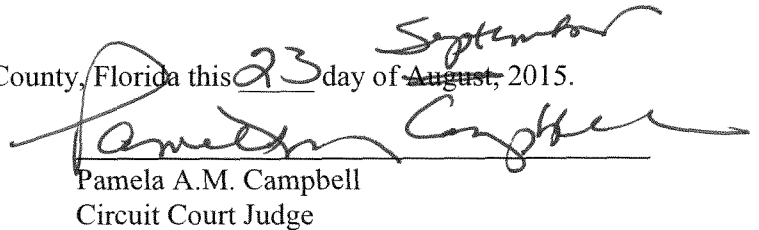 September
County, Florida this 23 day of August, 2015.
Pamela Campbell
Pamela A.M. Campbell
Circuit Court Judge